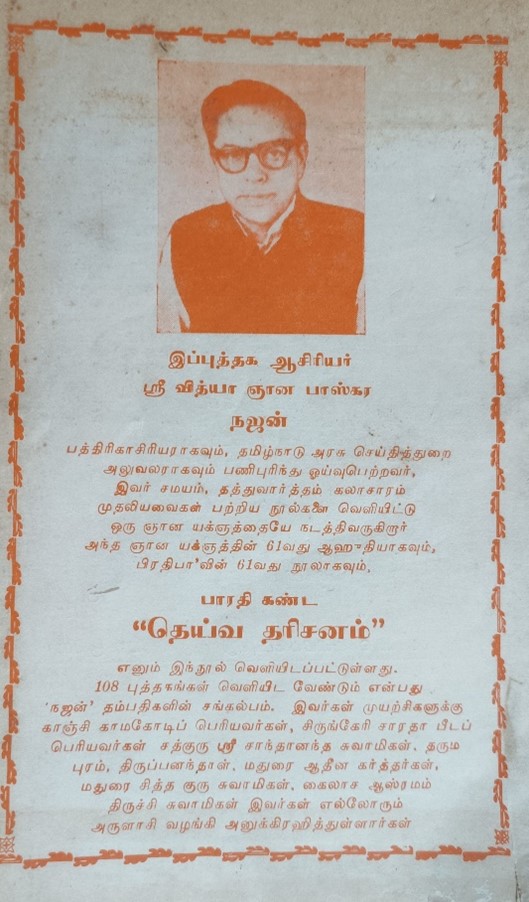 இப்புத்தக ஆசிரியர்
ஸ்ரீ வித்யா ஞான பாஸ்கர
நஜன்
பத்திரிகாசிரியராகவும், தமிழ்நாடு அரசு செய்தித்துறை
அலுவலராகவும் பணிபுரிந்து ஓய்வுபெற்றவர்,
இவர் சமயம், தத்துவார்த்தம் கலாசாரம்
முதலியவைகள் பற்றிய நூல்களை வெளியிட்டு
ஒரு ஞான யக்ஞத்தையே நடத்திவருகிறார்
அந்த ஞான யக்ஞத்தின் 61வது ஆஹுதியாகவும்,
பிரதிபா'வின் 61வது நூலாகவும்,
பாரதி கண்ட
“தெய்வ தரிசனம்”
எனும் இந்நூல் வெளியிடப்பட்டுள்ளது.
108 புத்தகங்கள் வெளியிட வேண்டும் என்பது
'நஜன்' தம்பதிகளின் சங்கல்பம். இவர்கள் முயற்சிகளுக்கு
காஞ்சி காமகோடிப் பெரியவர்கள், சிருங்கேரி சாரதா பீடப்
பெரியவர்கள் சத்குரு ஸ்ரீ சாந்தானந்த சுவாமிகள், தரும
புரம், திருப்பனந்தாள், மதுரை ஆதீன கர்த்தர்கள்,
மதுரை சித்த குரு சுவாமிகள், கைலாச ஆஸ்ரமம்
திருச்சி சுவாமிகள் இவர்கள் எல்லோரும்
அருளாசி வழங்கி அனுக்கிரஹித்துள்ளார்கள்